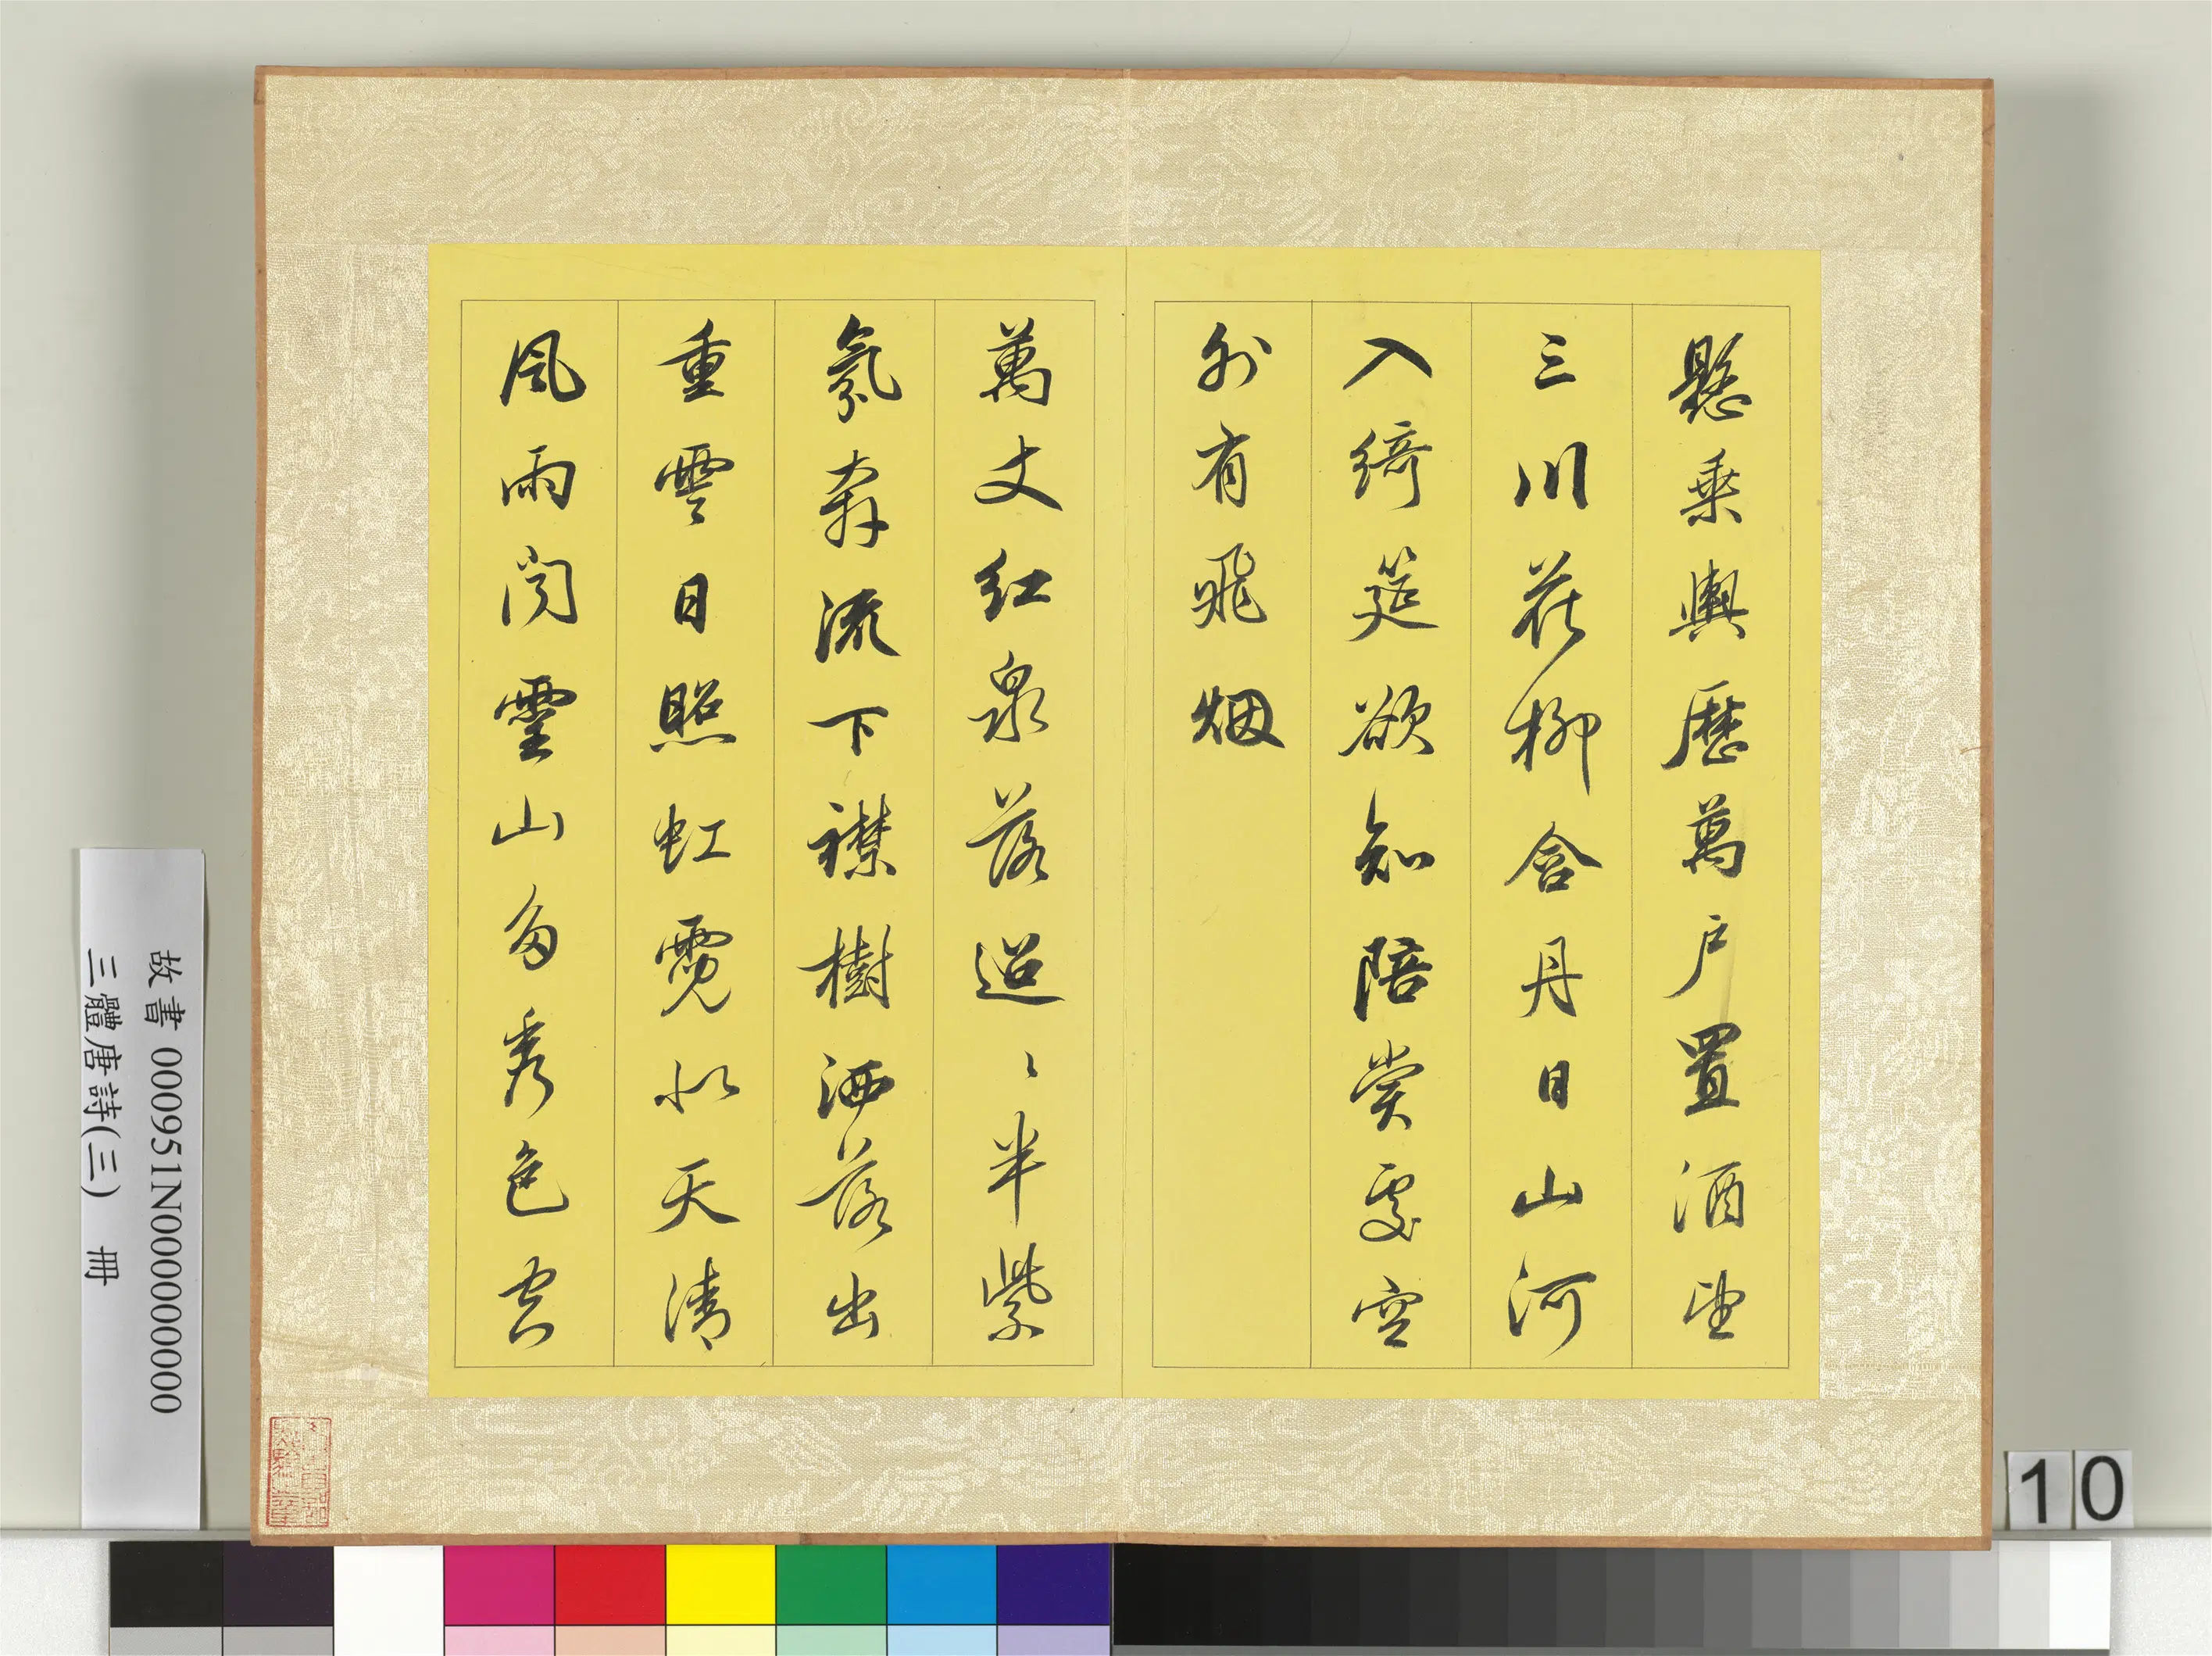 懸乘輿歷萬戶置酒望
三川花柳含丹日山河
入綺筵欲知陪賞處空
外有飛烟
萬丈紅泉落迢〻半紫
氛奔流下襍樹洒落出
重雲日照虹霓似天清
風雨聞靈山多秀色空
故書 000951N000000000
三體唐詩(三) 冊
10